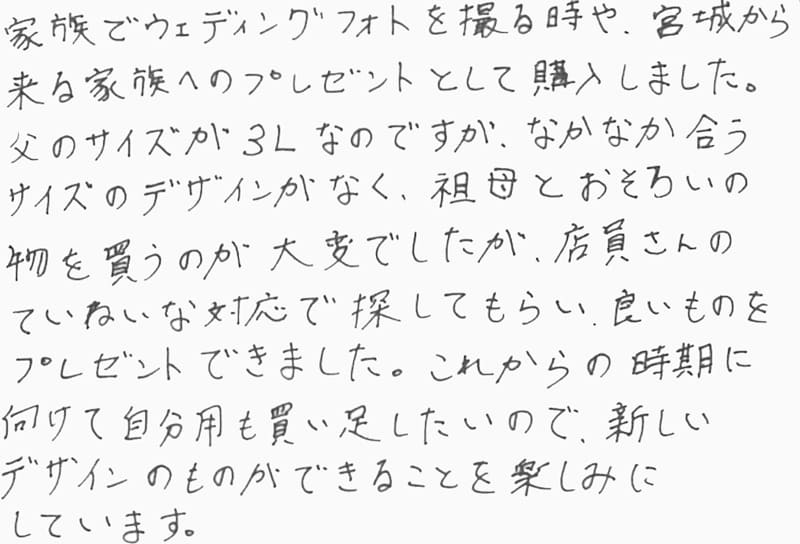 家族でウェディングフォトを撮る時や、宮城から
来る家族へのプレゼントとして購入しました。
父のサイズが3Lなのですが、なかなか合う
サイズのデザインがなく、祖母とおそろいの
物を買うのが大変でしたが、店員さんの
ていねいな対応で探してもらい、良いものを
プレゼントできました。これからの時期に
向けて自分用も買い足したいので、新しい
デザインのものができることを楽しみに
しています。